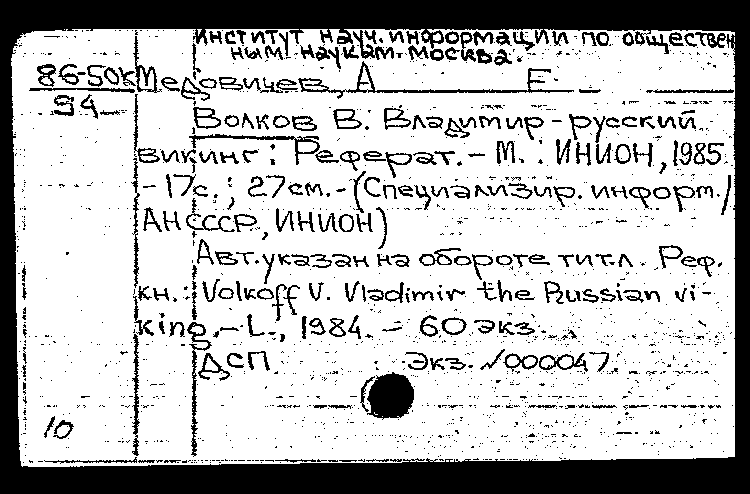 Институт науч. информации по обществен
ным наукам. Москва.
86-50к Медовичев, А Е.
94
Волков В. Владимир - русский
викинг: Реферат. - М.: ИНИОН, 1985
- 17с.; 27см. - (Специализир. информ./
АН СССР, ИНИОН)
Авт. указан на обороте тит.л. Реф.
кн.: Volkoff V. Vladimir the Russian vi-
king. - L., 1984. - 60 экз.
ДСП Экз. №000047
10